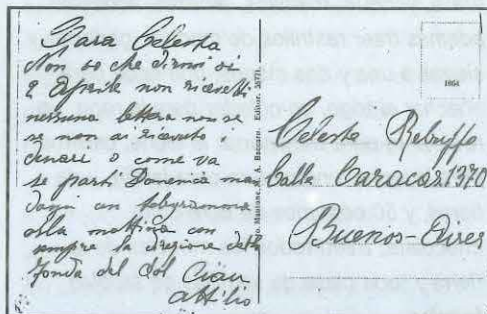 Cara Celesta
Non so che dirmi si
2 Aprile non ricevetti
nessuna lettera non se
se non ai ricevuto i
denari o come va
se parti Domenica man
dami un telegramma
alla mattina con
sempre la direzione della
Fonda del Sol Ciau
Attilio
1054
Celesta Rebuffo
Calle Caracas 1370
Buenos-Aires